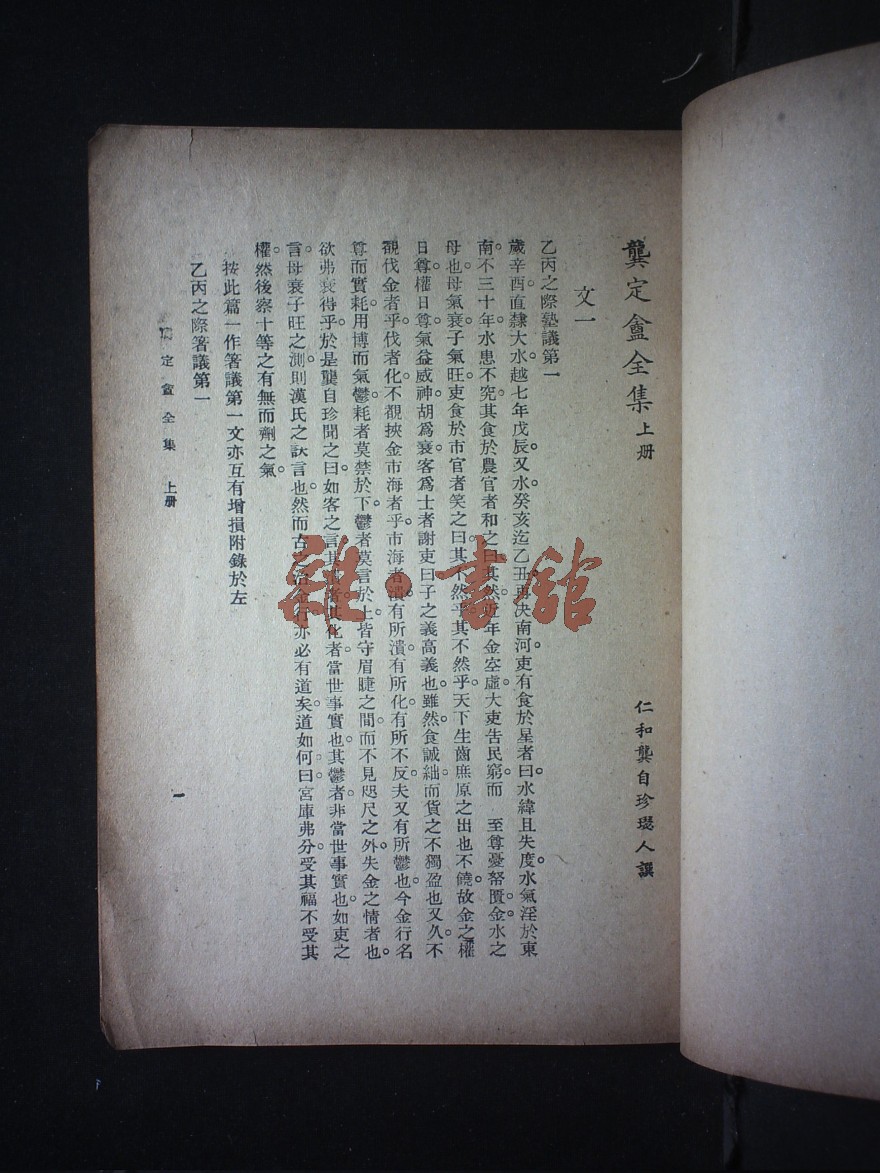 龔定盦全集 上册
仁和龔自珍璱人譔
文一
乙丙之際塾議第一
歲辛酉。直隸大水越七年戊辰。又水。癸亥迄乙丑。再決南河。吏有食於星者曰。水緯且失度。水氣淫於東
南。不三十年水患不究。其食於農官者和之曰。其然。近年金空虛。大吏告民窮。而 至尊憂帑匱。金水之
母也。母氣衰。子氣旺。吏食於市官者笑之曰。其不然乎。其不然乎。天下生齒庶。原之出也不饒。故金之權
日尊。權日尊。氣益威神。胡爲衰。客爲士者謝吏曰。子之義高義也。雖然。食誠絀。而貨之不獨盈也又久。不
覩伐金者乎。伐者化。不覩挾金市海者乎。市海者潰。有所潰。有所化。有所不反。夫又有所鬱也。今金行名
尊而實耗。用博而氣鬱。耗者莫禁於下。鬱者莫言於上。皆守眉睫之間。而不見咫尺之外。失金之情者也。
欲弗衰得乎。於是龔自珍聞之曰。如客之言。其者其化者。當世事實也。其鬱者。非當世事實也。如吏之
言。母衰子旺之測。則漢氏之訞言也。然而古之金行。亦必有道矣。道如何。曰。宮庫弗分。受其福不受其
權。然後察十等之有無而劑之氣。
按此篇一作箸議第一文亦互有增損附錄於左
乙丙之際箸議第一
定盦全集 上册
一
雜·書館